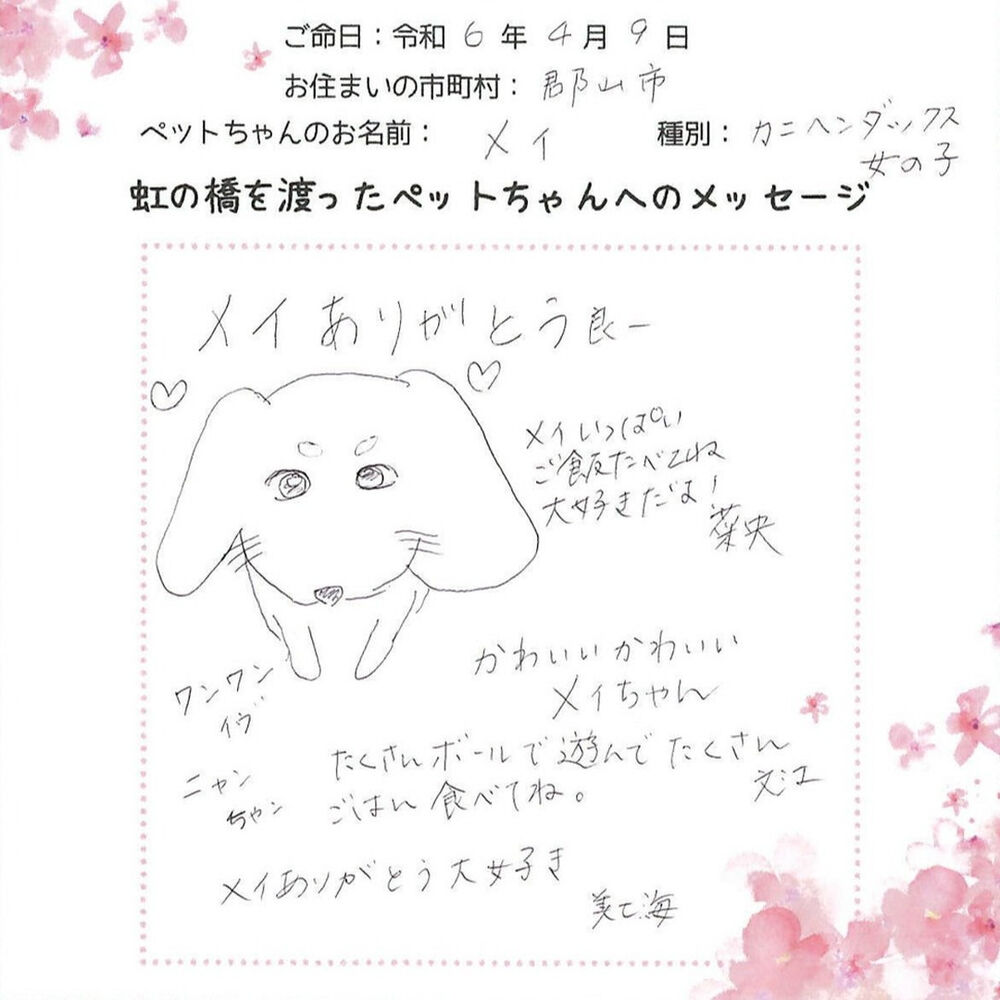 ご命日：令和 6 年 4 月 9 日
お住まいの市町村： 郡山市
ペットちゃんのお名前： メイ 種別： カニヘンダックス
女の子
虹の橋を渡ったペットちゃんへのメッセージ
メイありがとう良一
メイいっぱい
ご飯たべてね
大好きだよ！
菜央
かわいいかわいい
メイちゃん
ワンワン
イヴ
たくさんボールで遊んでたくさん
ごはん食べてね。
文江
ニャン
ちゃン
メイありがとう大好き
美七海